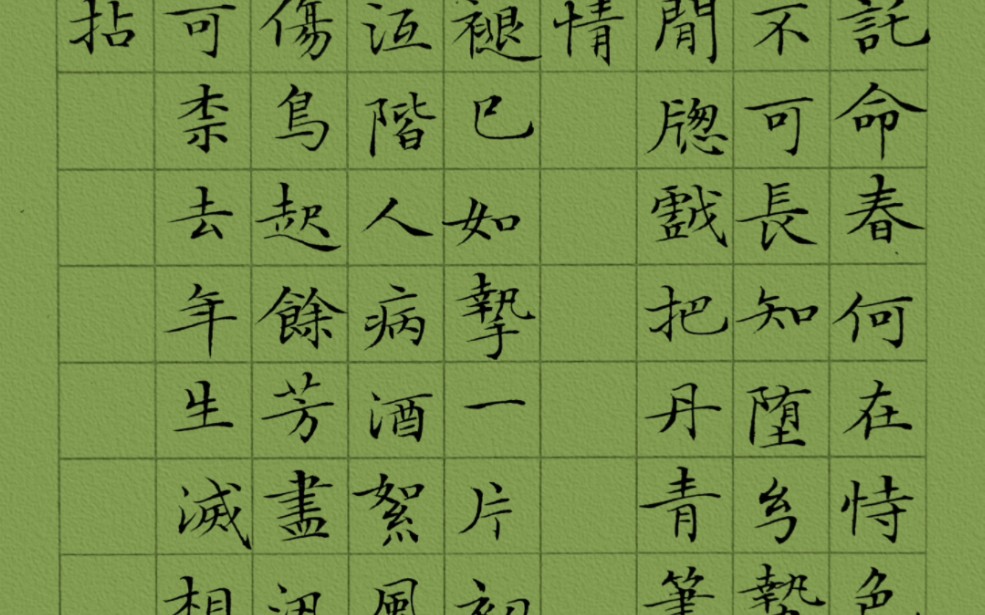 託命春何在恃色
不可長知堕
閒牕戲把丹青筆
情
褪巳如摯一片初
沍階人病酒絮風
傷鳥起餘芳盡
可柰去年生滅相
拈